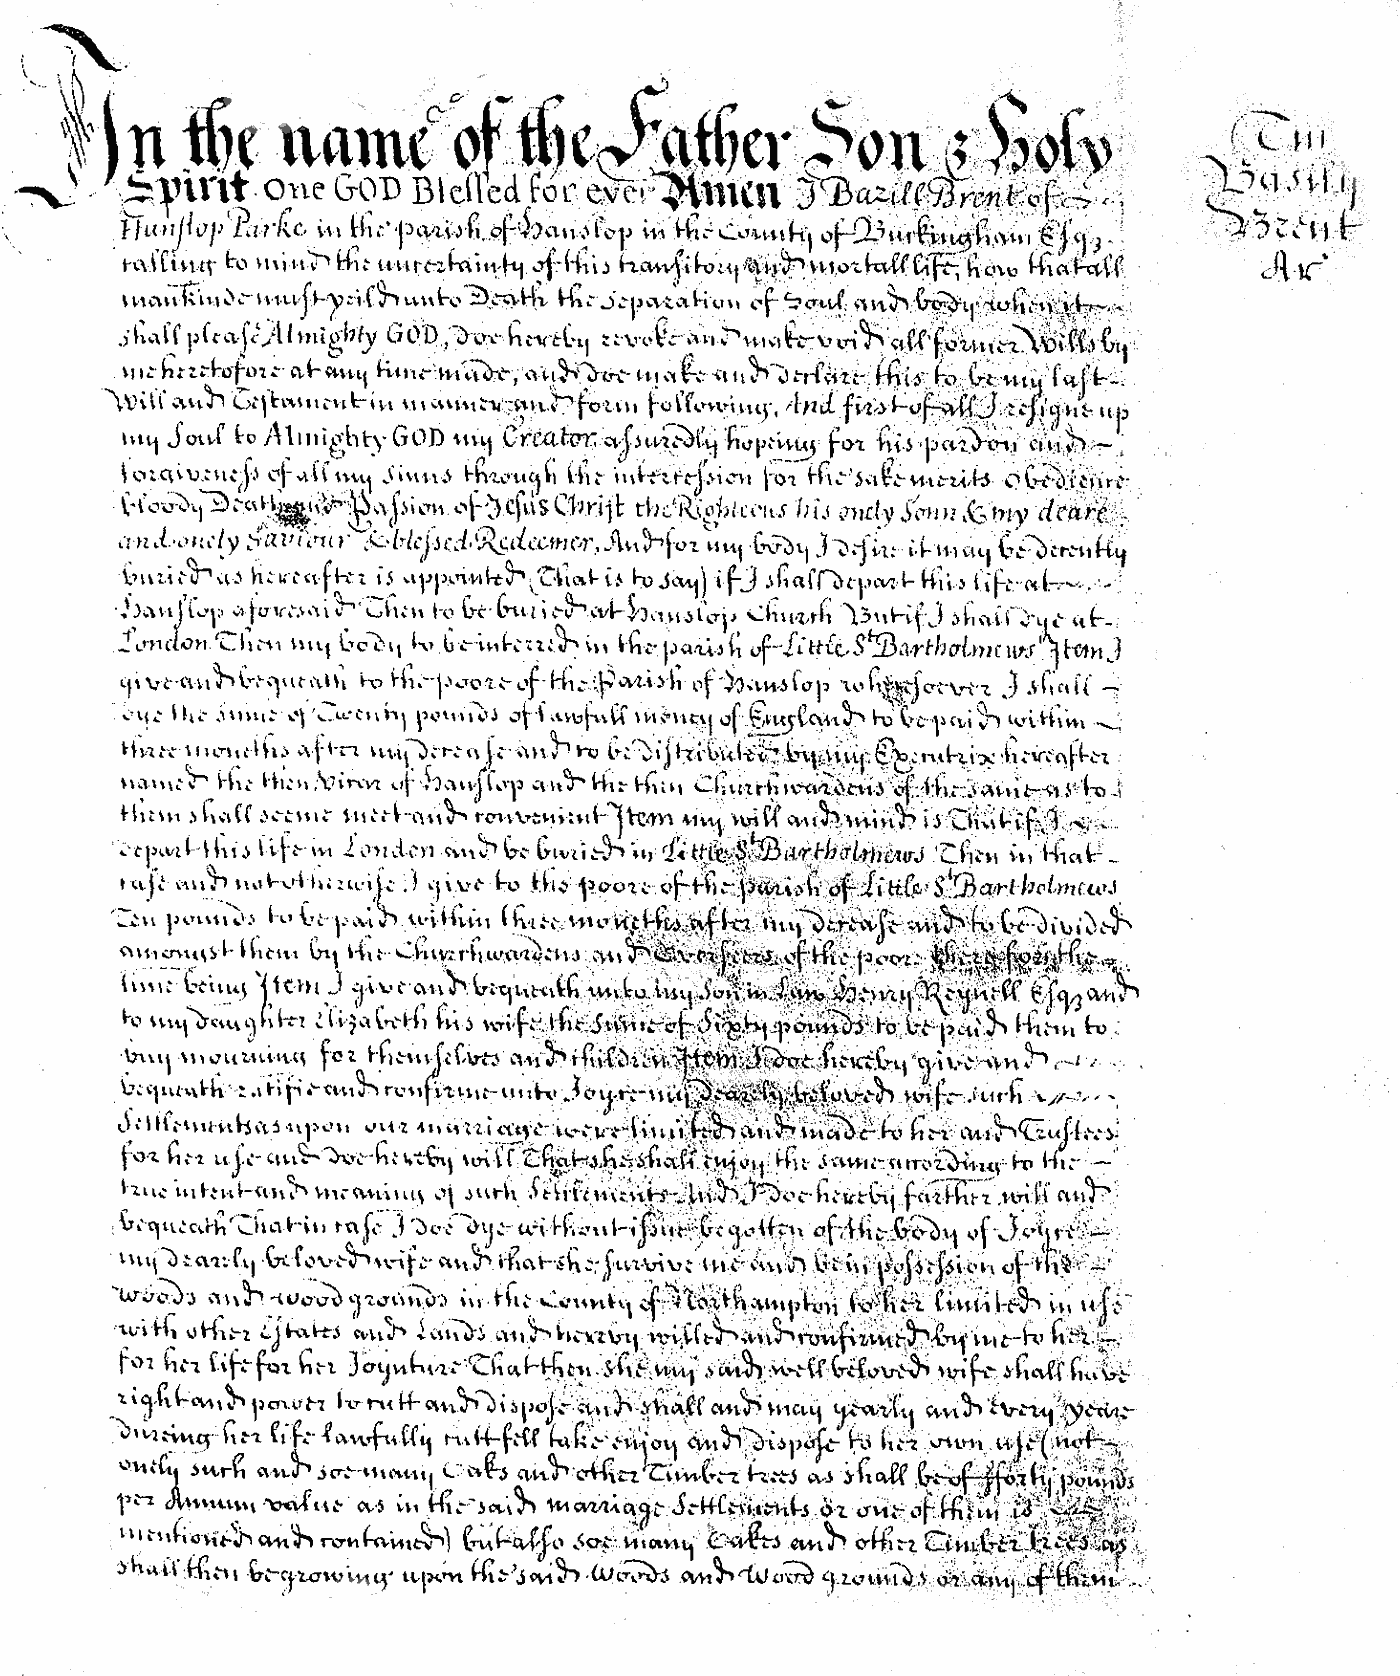 In the name of the Father Son & Holy
Spirit One GOD Blessed for ever Amen I Bazill Brent of
Hanslop Parke in the parish of Hanslop in the County of Buckingham Esqz
calling to mind the uncertainty of this transitory and mortall life, how that all
mankinde must yeild unto Death the separation of Soul and body when it
shall please Almighty GOD, Doe hereby revoke and make void all former Wills by
me heretofore at any time made, and doe make and declare this to be my last
Will and Testament in manner and form following, And first of all I resigne up
my Soul to Almighty GOD my Creator assuredly hopeing for his pardon and
forgiveness of all my sinns through the intercession for the sake merits obedience
bloody Death and Passion of Jesus Christ the Righteous his onely Sonn & my deare
and onely Saviour & blessed Redeemer, And for my body I desire it may be decently
buried as hereafter is appointed (That is to say) if I shall depart this life at
Hanslop aforesaid Then to be buried at Hanslop Church But if I shall dye at
London Then my body to be interred in the parish of Little St Bartholmews Item I
give and bequeath to the poore of the Parish of Hanslop wheresoever I shall
dye the sume of Twenty pounds of lawfull money of England to be paid within
three moneths after my decease and to be distributed by my Executrix hereafter
named the then Vicar of Hanslop and the then Churchwardens of the same as to
them shall seeme meet and convenient Item my will and mind is That if I
depart this life in London and be buried in Little St Bartholmews Then in that
case and not otherwise I give to the poore of the parish of Little St Bartholmews
Ten pounds to be paid within three moneths after my decease and to be divided
amongst them by the Churchwardens and Overseers of the poor there for the
time being Item I give and bequeath unto my Son in Law Henry Reynell Esqz and
to my daughter Elizabeth his wife the sume of Sixty pounds to be paid them to
buy mourning for themselves and children Item I doe hereby give and
bequeath ratifie and confirme unto Joyce my dearely beloved wife such
Settlements as upon our marriage were limited and made to her and Trustees
for her use and doe hereby will That she shall enjoy the same according to the
true intent and meaning of such Settlements And I doe hereby farther will and
bequeath That in case I doe dye without issue begotten of the body of Joyce
my dearely beloved wife and that she survive me and be in possession of the
woods and wood grounds in the County of Northampton to her limited in use
with other Estates and Lands and hereby willed and confirmed by me to her
for her life for her Joynture That then she my said well beloved wife shall have
right and power to cutt and dispose and shall and may yearly and every yeare
dureing her life lawfully cutt fell take enjoy and dispose to her own use (not
onely such and soe many Oaks and other Timber trees as shall be of fforty pounds
per Annum value as in the said marriage Settlements or one of them is
mentioned and contained) but also soe many Oakes and other Timber trees as
shall then be growing upon the said Woods and Wood grounds or any of them
Tm
Basily
Brent
Ar